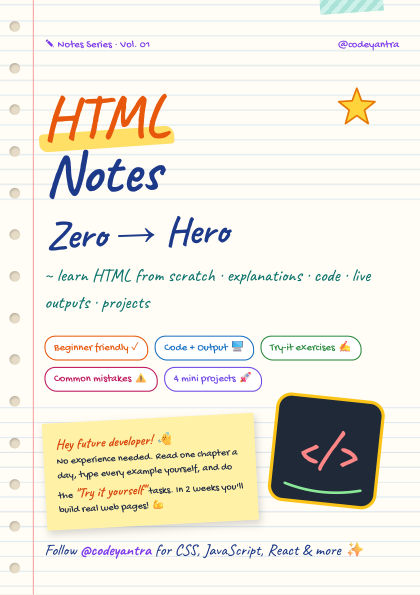 ✎ Notes Series · Vol. 01
@codeyantra
HTML
Notes
Zero → Hero
~ learn HTML from scratch · explanations · code · live
outputs · projects
Beginner friendly ✓
Code + Output 💻
Try-it exercises ✍️
Common mistakes ⚠️
4 mini projects 🚀
Hey future developer! 👋
No experience needed. Read one chapter a
day, type every example yourself, and do
the "Try it yourself" tasks. In 2 weeks you'll
build real web pages! 💪
</>
Follow @codeyantra for CSS, JavaScript, React & more ✨